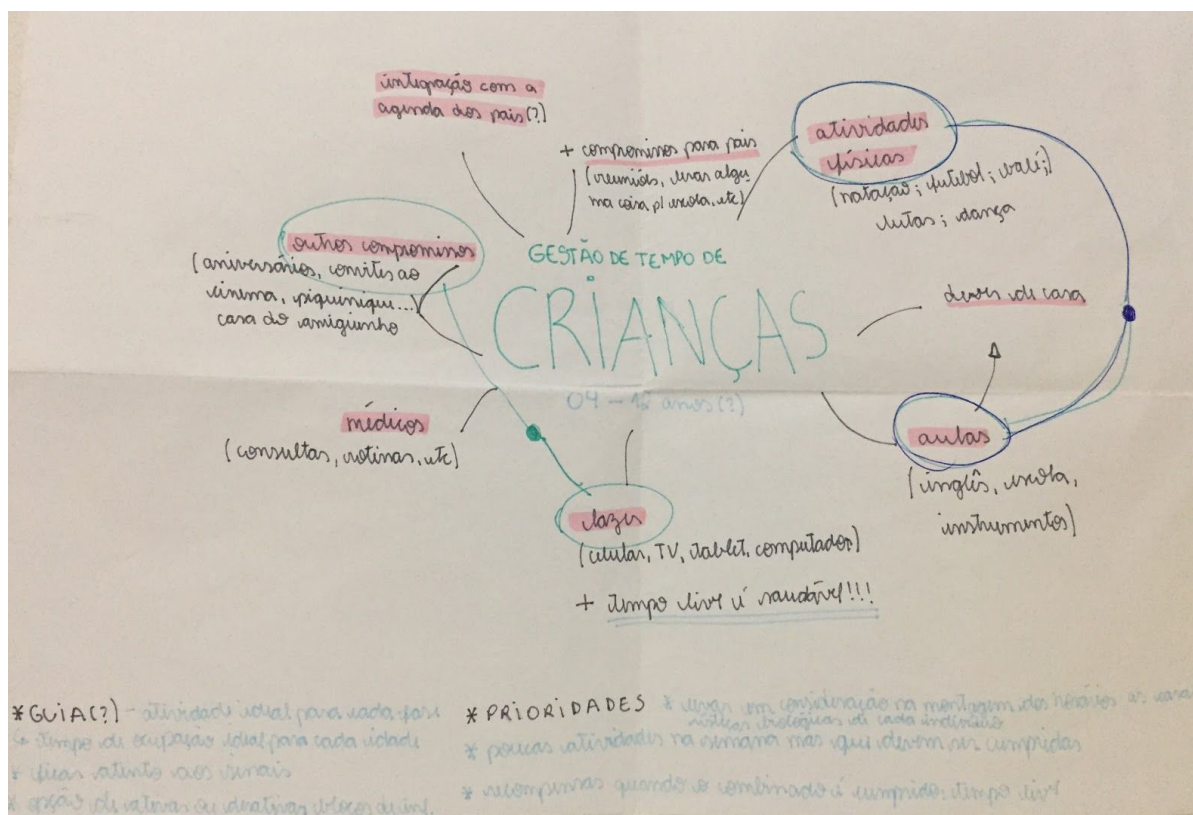 integração com a
agenda dos pais (?)
+ compromissos para pais
(reuniões, levar algu
ma coisa p/ escola, etc)
atividades
físicas
(natação; futebol; balé;)
lutas; dança
outros compromissos
(aniversários, convites ao
cinema, piquinique...)
casa do amiguinho
GESTÃO DE TEMPO DE
CRIANÇAS
04 - 12 anos (?)
dever de casa
médicos
(consultas, rotinas, etc)
aulas
(inglês, escola,
instrumentos)
lazer
(celular, TV, tablet, computador)
+ tempo livre é saudável!!!
*GUIA(?) - atividade ideal para cada fase
↳ tempo de ocupação ideal para cada idade
* ficar atento aos sinais
* opção de ativar ou desativar blocos de
*PRIORIDADES
* levar em consideração na montagem dos horários as
biológicas de cada indivíduo
* poucas atividades na semana mas que devem ser cumpridas
* recompensas quando o combinado é cumprido: tempo livre